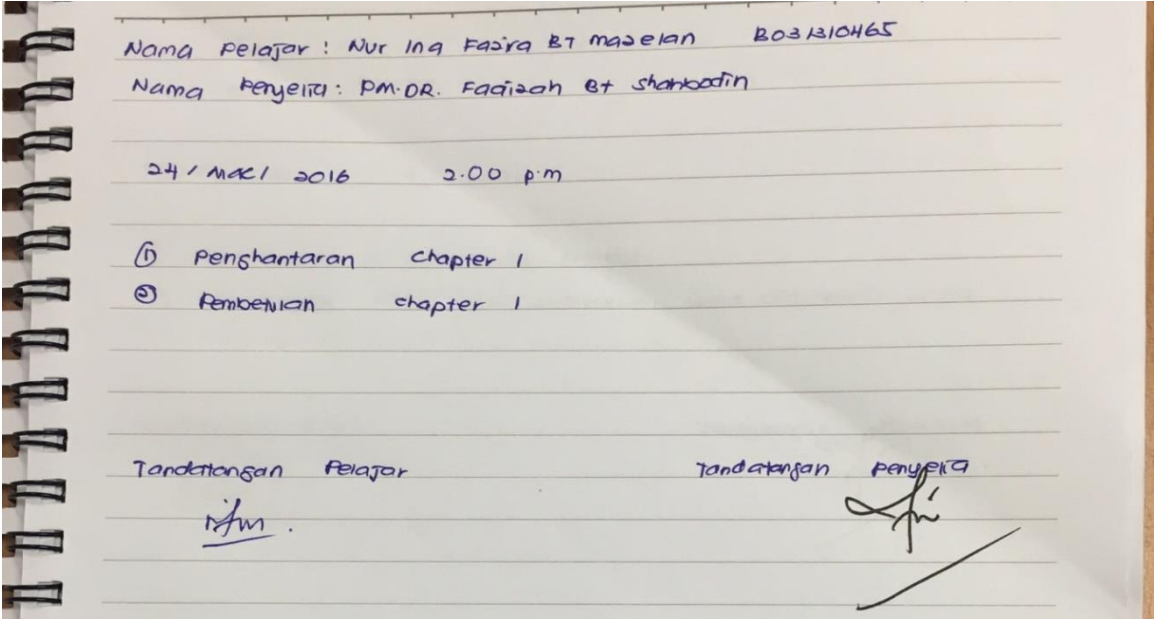 Nama Pelajar : Nur Ina Fazira BT Mazelan B031310465
Nama Penyelia : PM.DR. Faaizah Bt Shahbodin
24 / Mac / 2016 2.00 p.m
① Penghantaran chapter 1
② Pembetulan chapter 1
Tandatangan Pelajar Tandatangan Penyelia